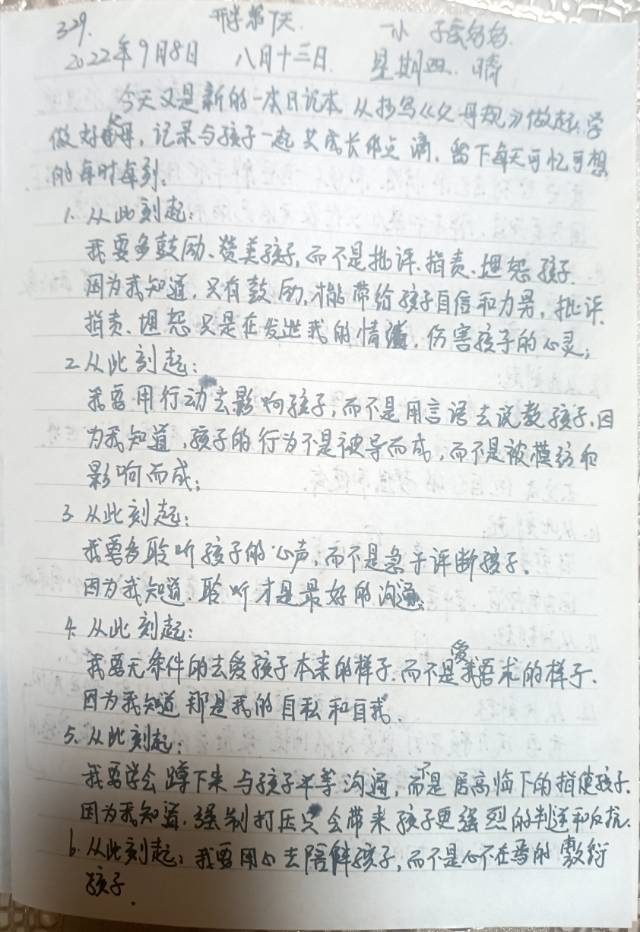 329. 第1天 一小
2022年9月8日 八月十三日 星期四 晴
今天又是新的一本日记本,从抄写《父母规》做起,学
做好父母,记录与孩子一起共成长的点滴,留下每天可忆可想
的每时每刻。
1. 从此刻起:
我要多鼓励、赞美孩子,而不是批评、指责、埋怨孩子.
因为我知道,只有鼓励,才能带给孩子自信和力男,批评、
指责、埋怨只是在发泄我的情绪,伤害孩子的心灵;
2. 从此刻起:
我要用行动去影响孩子,而不是用言语去说教孩子.因
为我知道,孩子的行为不是被导而成,而不是被模纺和
影响而成;
3. 从此刻起:
我要多聆听孩子的心声,而不是急于评断孩子.
因为我知道,聆听才是最好的沟通;
4. 从此刻起:
我要无条件的去爱孩子本来的样子,而不是爱我要求的样子.
因为我知道那是我的自私和自我.
5. 从此刻起:
我要学会蹲下来与孩子平等沟通,而不是居高临下的指使孩子.
因为我知道.强制打压只会带来孩子更强烈的判逆和反抗.
6. 从此刻起:我要用心去陪伴孩子,而不是心不在焉的敷衍
孩子.